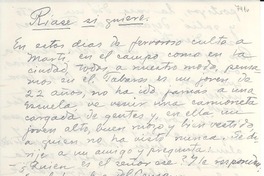 Ríase si quiere.
En estos días de fervoroso culto a
Martí, en el campo como en la
ciudad, todos a nuestro modo, pensa
mos en él. Tabares es un joven de
22 años, no ha ido jamás a una
escuela. ve venir una camioneta
cargada de gentes y en ella un
joven alto, buen mozo y bien vestido
a quien no ha visto nunca. Se di-
rije a un amigo y pregunta:
¿Quien es el señor ese? Y le responden